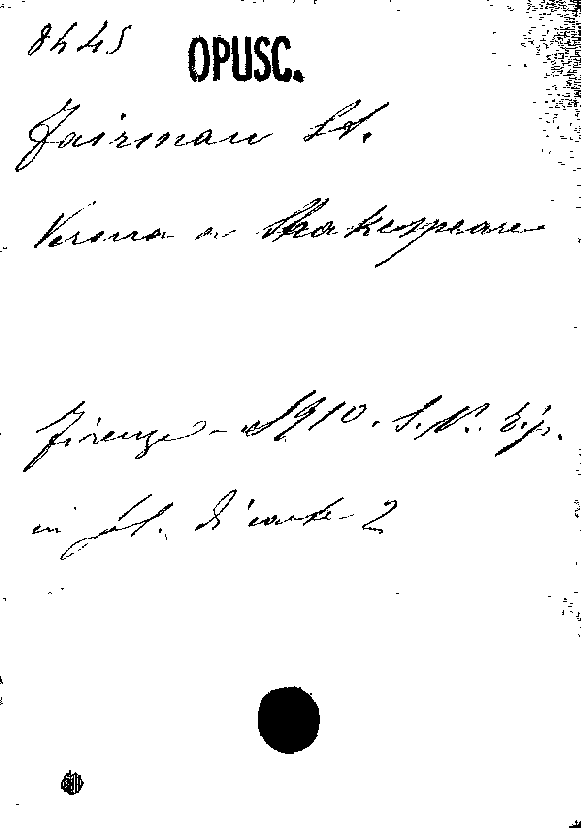 8445 OPUSC.
Fairman St.
Verona a Shakespeare
Firenze - 1910. S. N. Tip.
in fol. di carte 2